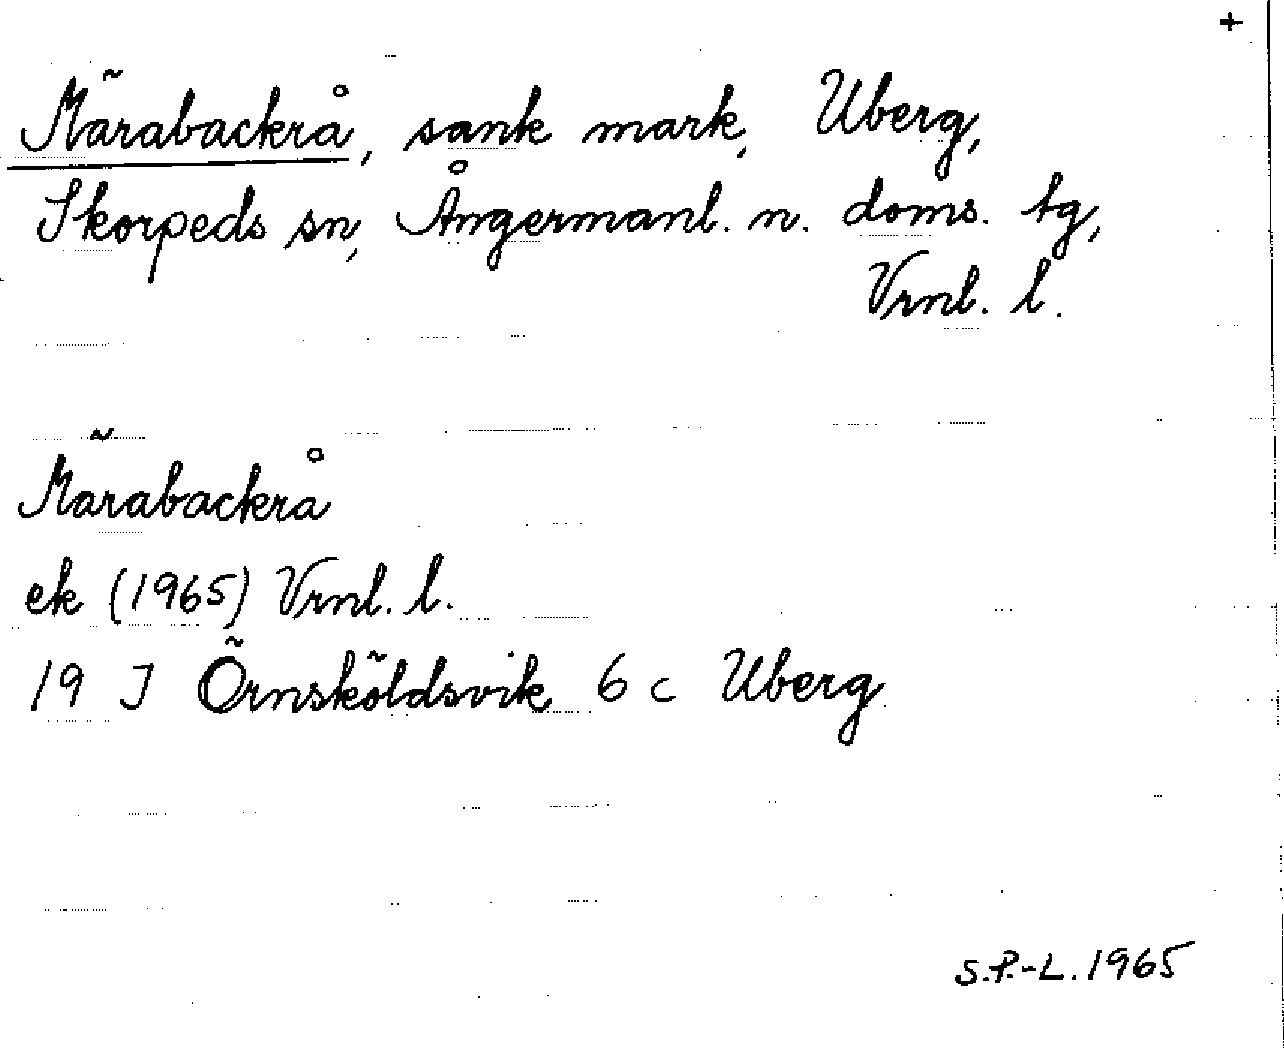 +
Märabackrå, sank mark, Uberg,
Skorpeds sn, Ångermanl. n. doms. tg,
Vrnl. l.
Märabackrå
ek (1965) Vrnl. l.
19 J Örnsköldsvik 6 c Uberg
S.P.-L. 1965